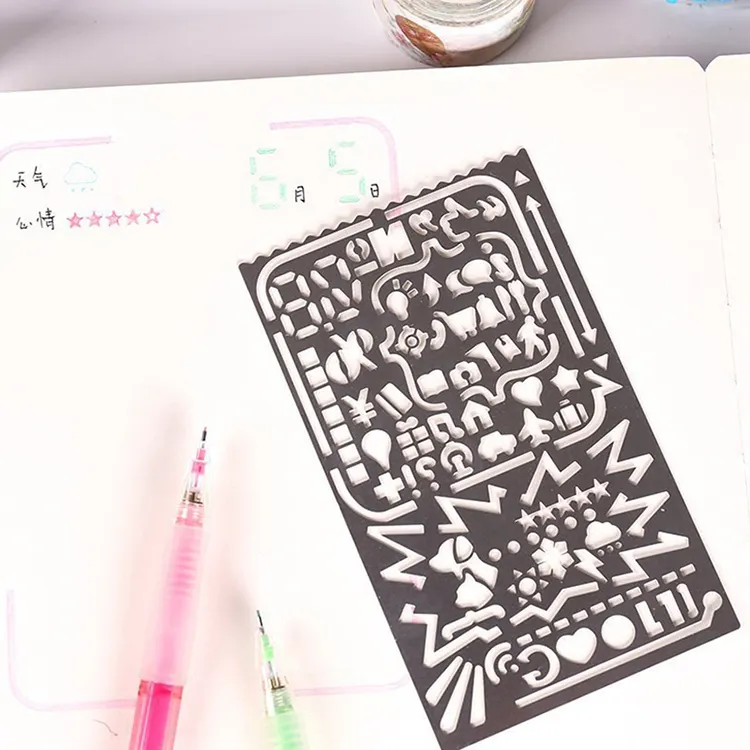 天气
6月5日
心情